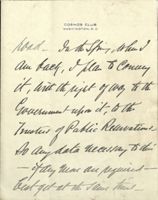 COSMOS CLUB
WASHINGTON, D.C.
road – In the Spring, when I
am back, I plan to convey
it, with the right of way to the
Government upon it, to the
Trustees of Public Reservations
So any data necessary to this
if any more are required –
best get at the same time –